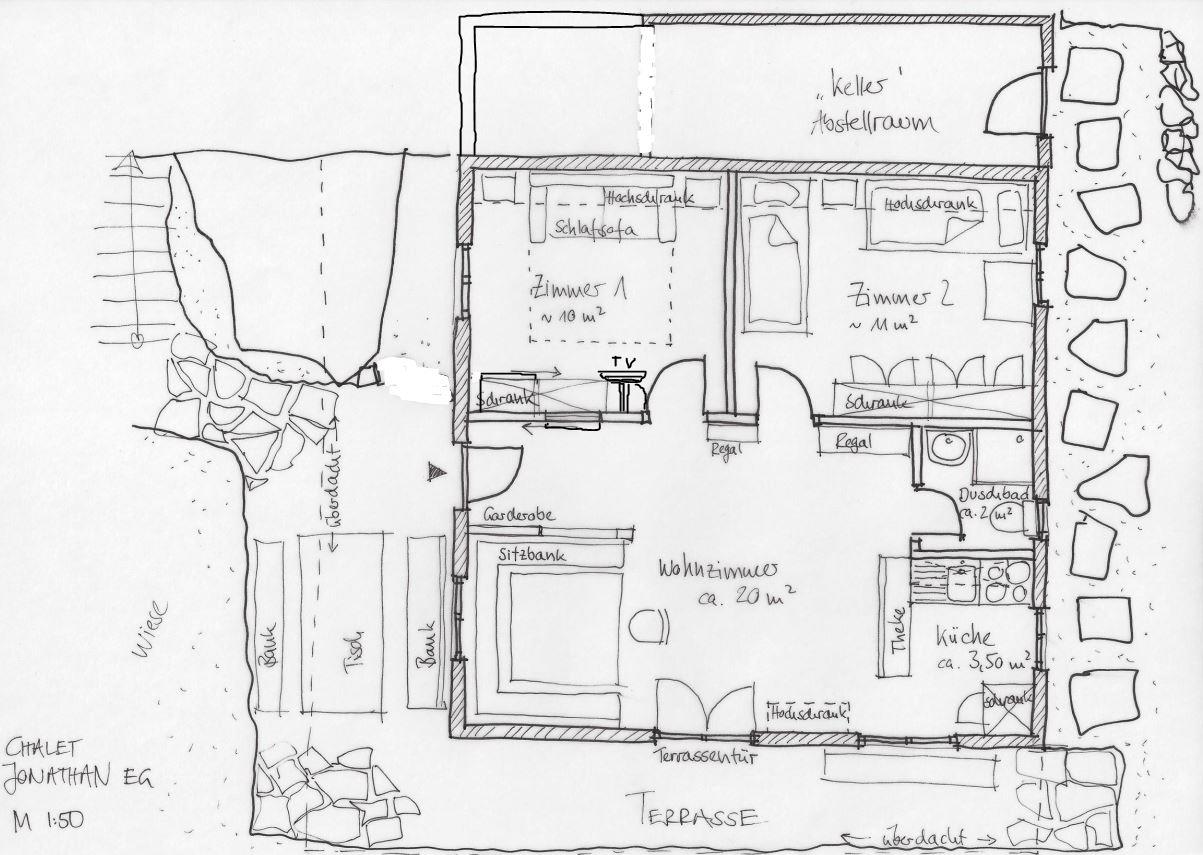 „Keller“
Abstellraum
Hochschrank
Schlafsofa
Zimmer 1
~ 10 m²
TV
Schrank
Hochschrank
Zimmer 2
~ 11 m²
Schrank
Regal
Regal
Duschbad
ca. 2 m²
überdacht
Garderobe
Sitzbank
Wohnzimmer
ca. 20 m²
Theke
Küche
ca. 3,50 m²
Schrank
Hochschrank
Wiese
Bank
Tisch
Bank
Terrassentür
TERRASSE
überdacht
CHALET
JONATHAN EG
M 1:50